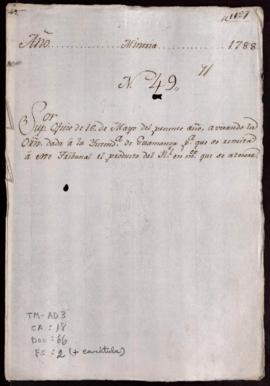 Año Minería 1788
N. 49
Sup.or Oficio de 16 de Mayo del presente año, avisando la
Orn. dada a la Intend.a de Guamanga p.a que se remita
á este Tribunal el producto del R.l en m.co que se
TM-AD3
CA: 18
DOC: 66
FS: 2 (+ carátula)